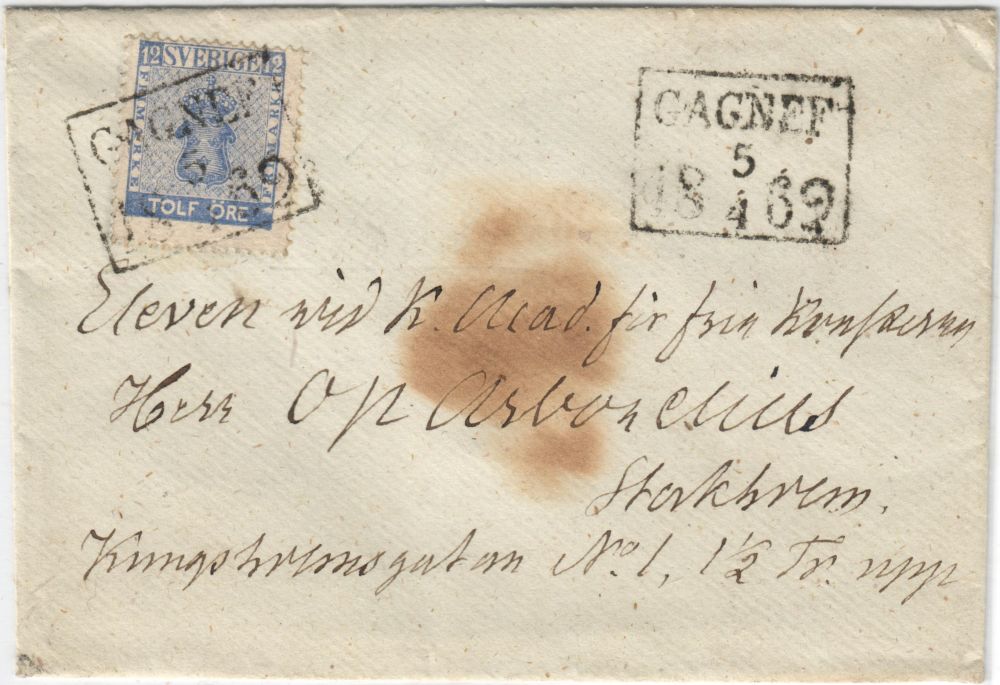 12 SVERIGE 12
FRIMÄRKE
FRIMÄRKE
TOLF ÖRE
GAGNEF
5
18 4 62
GAGNEF
5
18 4 62
Eleven wid K. Acad. för fria Konsterna
Herr O P Arborelius
Stockholm.
Kungsholmsgatan No 1, 1½ Tr. upp